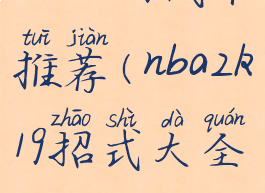 tuī jiàn
推荐(nba2k
zhāo shì dà quán
19招式大全